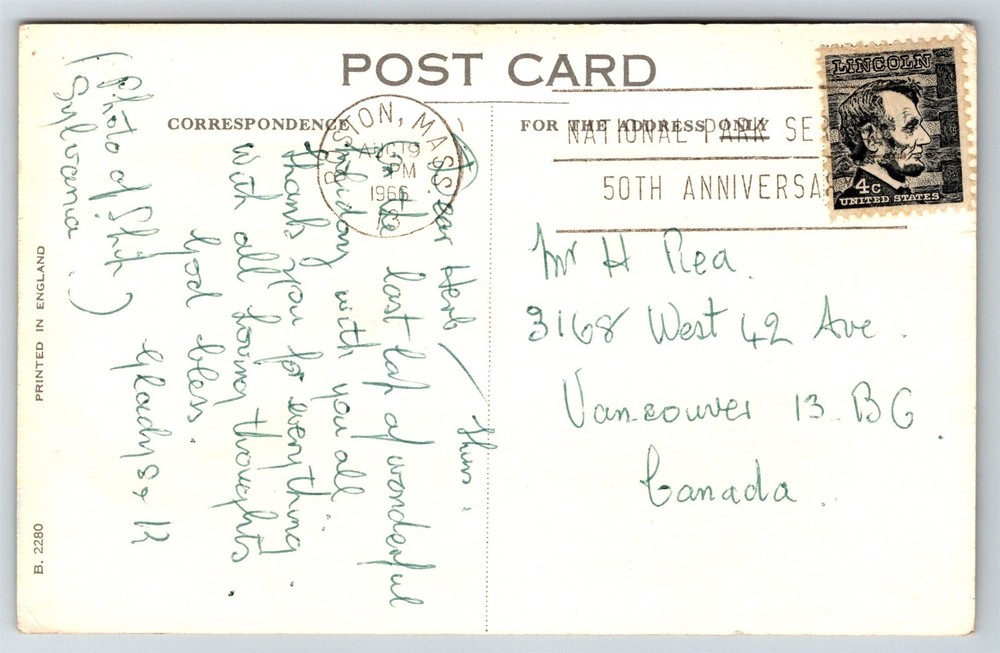 POST CARD
CORRESPONDENCE
FOR THE ADDRESS ONLY
BOSTON, MASS.
AUG 19
PM
1966
NATIONAL PARK SE
50TH ANNIVERSA
LINCOLN
4c
UNITED STATES
Thurs.
Dear Herb
On the last lap of wonderful
holiday with you all
thanks you for everything.
With all loving thoughts.
God bless.
Gladys & K
(Photo of Ship
Sylvania.)
Mr H Rea.
3168 West 42 Ave.
Vancouver 13 BC
Canada.
PRINTED IN ENGLAND
B. 2280